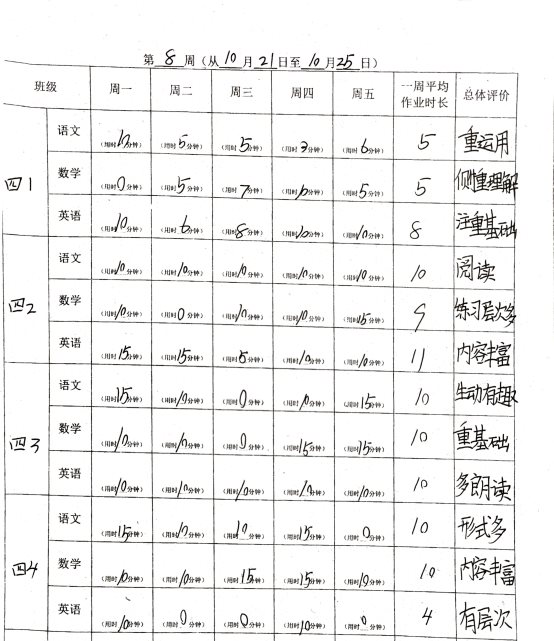 第 8 周（从 10 月 21 日至 10 月 25 日）
班级 周一 周二 周三 周四 周五 一周平均作业时长 总体评价
四1 语文 （用时10分钟） （用时5分钟） （用时5分钟） （用时3分钟） （用时6分钟） 5 重运用
数学 （用时0分钟） （用时5分钟） （用时7分钟） （用时6分钟） （用时5分钟） 5 侧重理解
英语 （用时10分钟） （用时6分钟） （用时8分钟） （用时10分钟） （用时10分钟） 8 注重基础
四2 语文 （用时10分钟） （用时10分钟） （用时10分钟） （用时10分钟） （用时10分钟） 10 阅读
数学 （用时10分钟） （用时0分钟） （用时10分钟） （用时10分钟） （用时15分钟） 9 练习层次多
英语 （用时15分钟） （用时15分钟） （用时5分钟） （用时10分钟） （用时10分钟） 11 内容丰富
四3 语文 （用时15分钟） （用时10分钟） （用时0分钟） （用时10分钟） （用时15分钟） 10 生动有趣
数学 （用时10分钟） （用时10分钟） （用时0分钟） （用时15分钟） （用时15分钟） 10 重基础
英语 （用时10分钟） （用时10分钟） （用时10分钟） （用时10分钟） （用时10分钟） 10 多朗读
四4 语文 （用时15分钟） （用时10分钟） （用时10分钟） （用时15分钟） （用时0分钟） 10 形式多
数学 （用时10分钟） （用时10分钟） （用时15分钟） （用时15分钟） （用时10分钟） 10 内容丰富
英语 （用时10分钟） （用时0分钟） （用时0分钟） （用时10分钟） （用时0分钟） 4 有层次